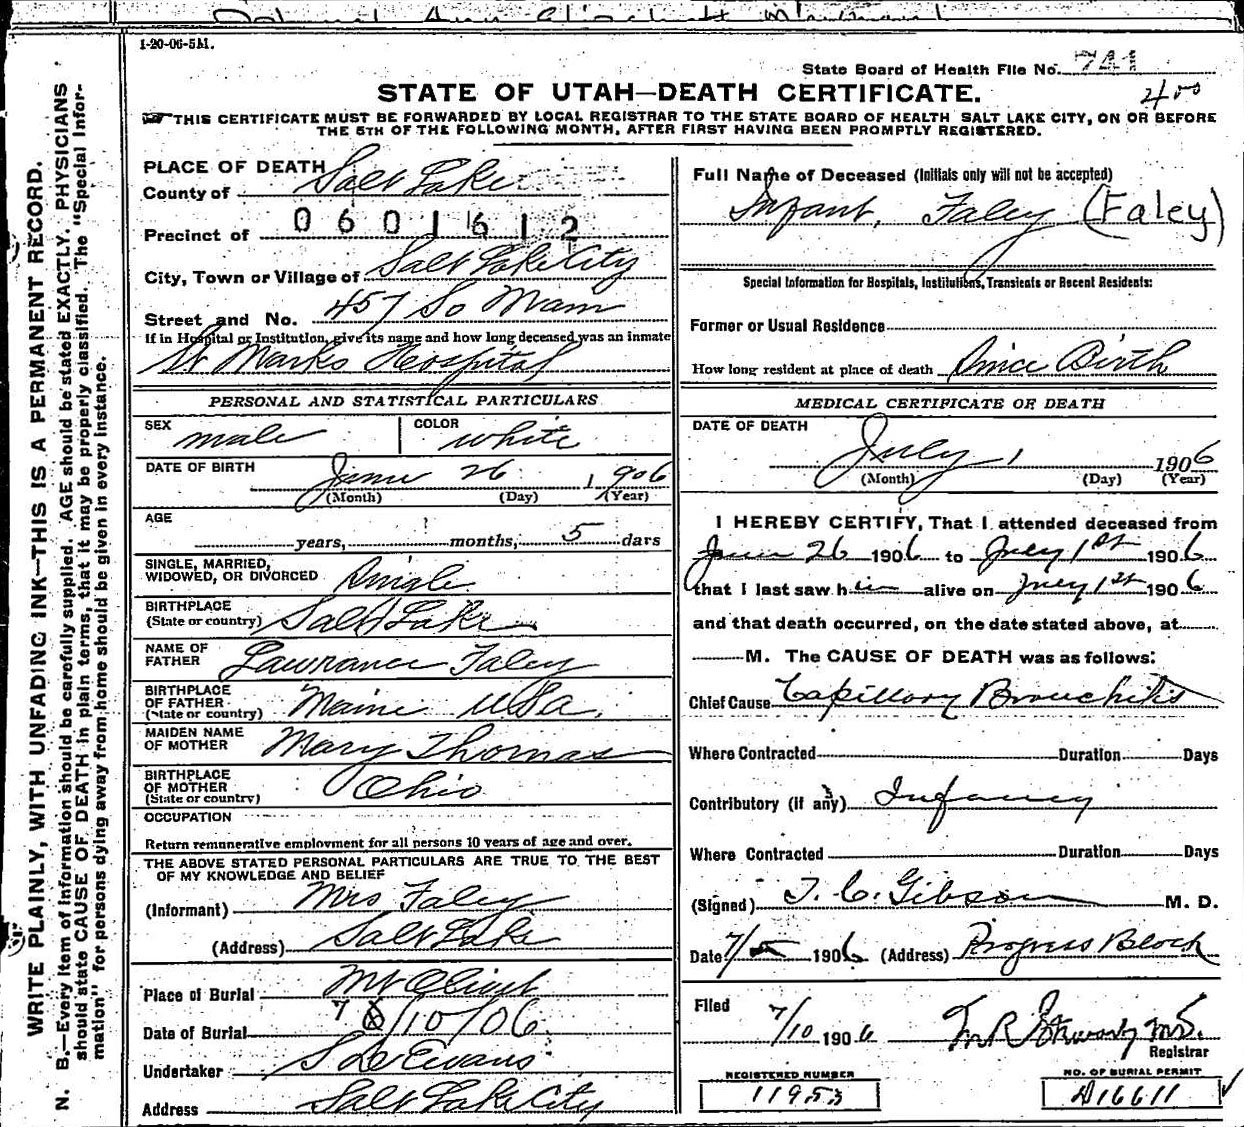 1-20-06-5M.
State Board of Health File No. 741
STATE OF UTAH—DEATH CERTIFICATE.
400
THIS CERTIFICATE MUST BE FORWARDED BY LOCAL REGISTRAR TO THE STATE BOARD OF HEALTH SALT LAKE CITY, ON OR BEFORE
THE 5TH OF THE FOLLOWING MONTH, AFTER FIRST HAVING BEEN PROMPTLY REGISTERED.
WRITE PLAINLY, WITH UNFADING INK—THIS IS A PERMANENT RECORD.
N. B.—Every item of information should be carefully supplied. AGE should be stated EXACTLY. PHYSICIANS
should state CAUSE OF DEATH in plain terms, that it may be properly classified. The "Special Infor-
mation" for persons dying away from home should be given in every instance.
PLACE OF DEATH
County of Salt Lake
0601612
Precinct of
City, Town or Village of Salt Lake City
Street and No. 457 So Main
If in Hospital or Institution, give its name and how long deceased was an inmate
St Marks Hospital
PERSONAL AND STATISTICAL PARTICULARS
SEX male COLOR white
DATE OF BIRTH June 26 1906
(Month) (Day) (Year)
AGE
years, months, 5 days
SINGLE, MARRIED,
WIDOWED, OR DIVORCED Single
BIRTHPLACE
(State or country) Salt Lake
NAME OF
FATHER Lawrance Faley
BIRTHPLACE
OF FATHER
(State or country) Maine USa.
MAIDEN NAME
OF MOTHER Mary Thomas
BIRTHPLACE
OF MOTHER
(State or country) Ohio
OCCUPATION
Return remunerative employment for all persons 10 years of age and over.
THE ABOVE STATED PERSONAL PARTICULARS ARE TRUE TO THE BEST
OF MY KNOWLEDGE AND BELIEF
(Informant) Mrs Faley
(Address) Salt Lake
Place of Burial Mt Olivet
Date of Burial 7/10/06
Undertaker S D Evans
Address Salt Lake City
Full Name of Deceased (Initials only will not be accepted)
Infant, Faley (Faley)
Special Information for Hospitals, Institutions, Transients or Recent Residents:
Former or Usual Residence
How long resident at place of death Since Birth
MEDICAL CERTIFICATE OF DEATH
DATE OF DEATH
July 1 1906
(Month) (Day) (Year)
I HEREBY CERTIFY, That I attended deceased from
June 26 1906 to July 1st 1906
that I last saw him alive on July 1st 1906
and that death occurred, on the date stated above, at
M. The CAUSE OF DEATH was as follows:
Chief Cause Capillary Bronchitis
Where Contracted Duration Days
Contributory (if any) Infancy
Where Contracted Duration Days
(Signed) T. C. Gibson M. D.
Date 7/ 1906 (Address) Progress Block
Filed 7/10 1906 M R Stewart MD.
Registrar
REGISTERED NUMBER
11953
NO. OF BURIAL PERMIT
A16611